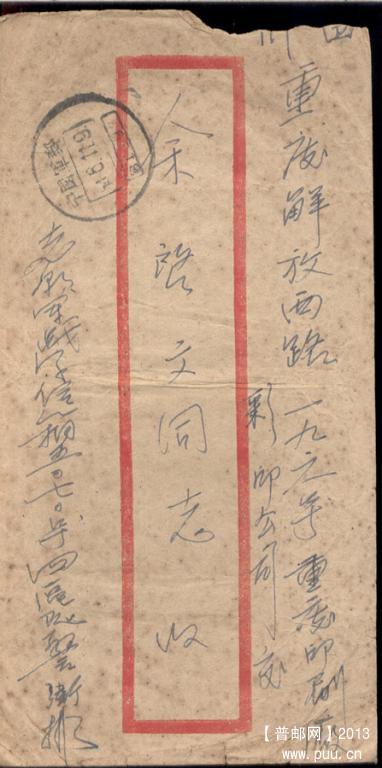 四川
重庆解放西路一九六号重庆印刷厂
彩印公司交
余啓文同志 收
志愿军战字信箱五〇七〇号四区队警卫
【普邮网】2013
www.puu.cn